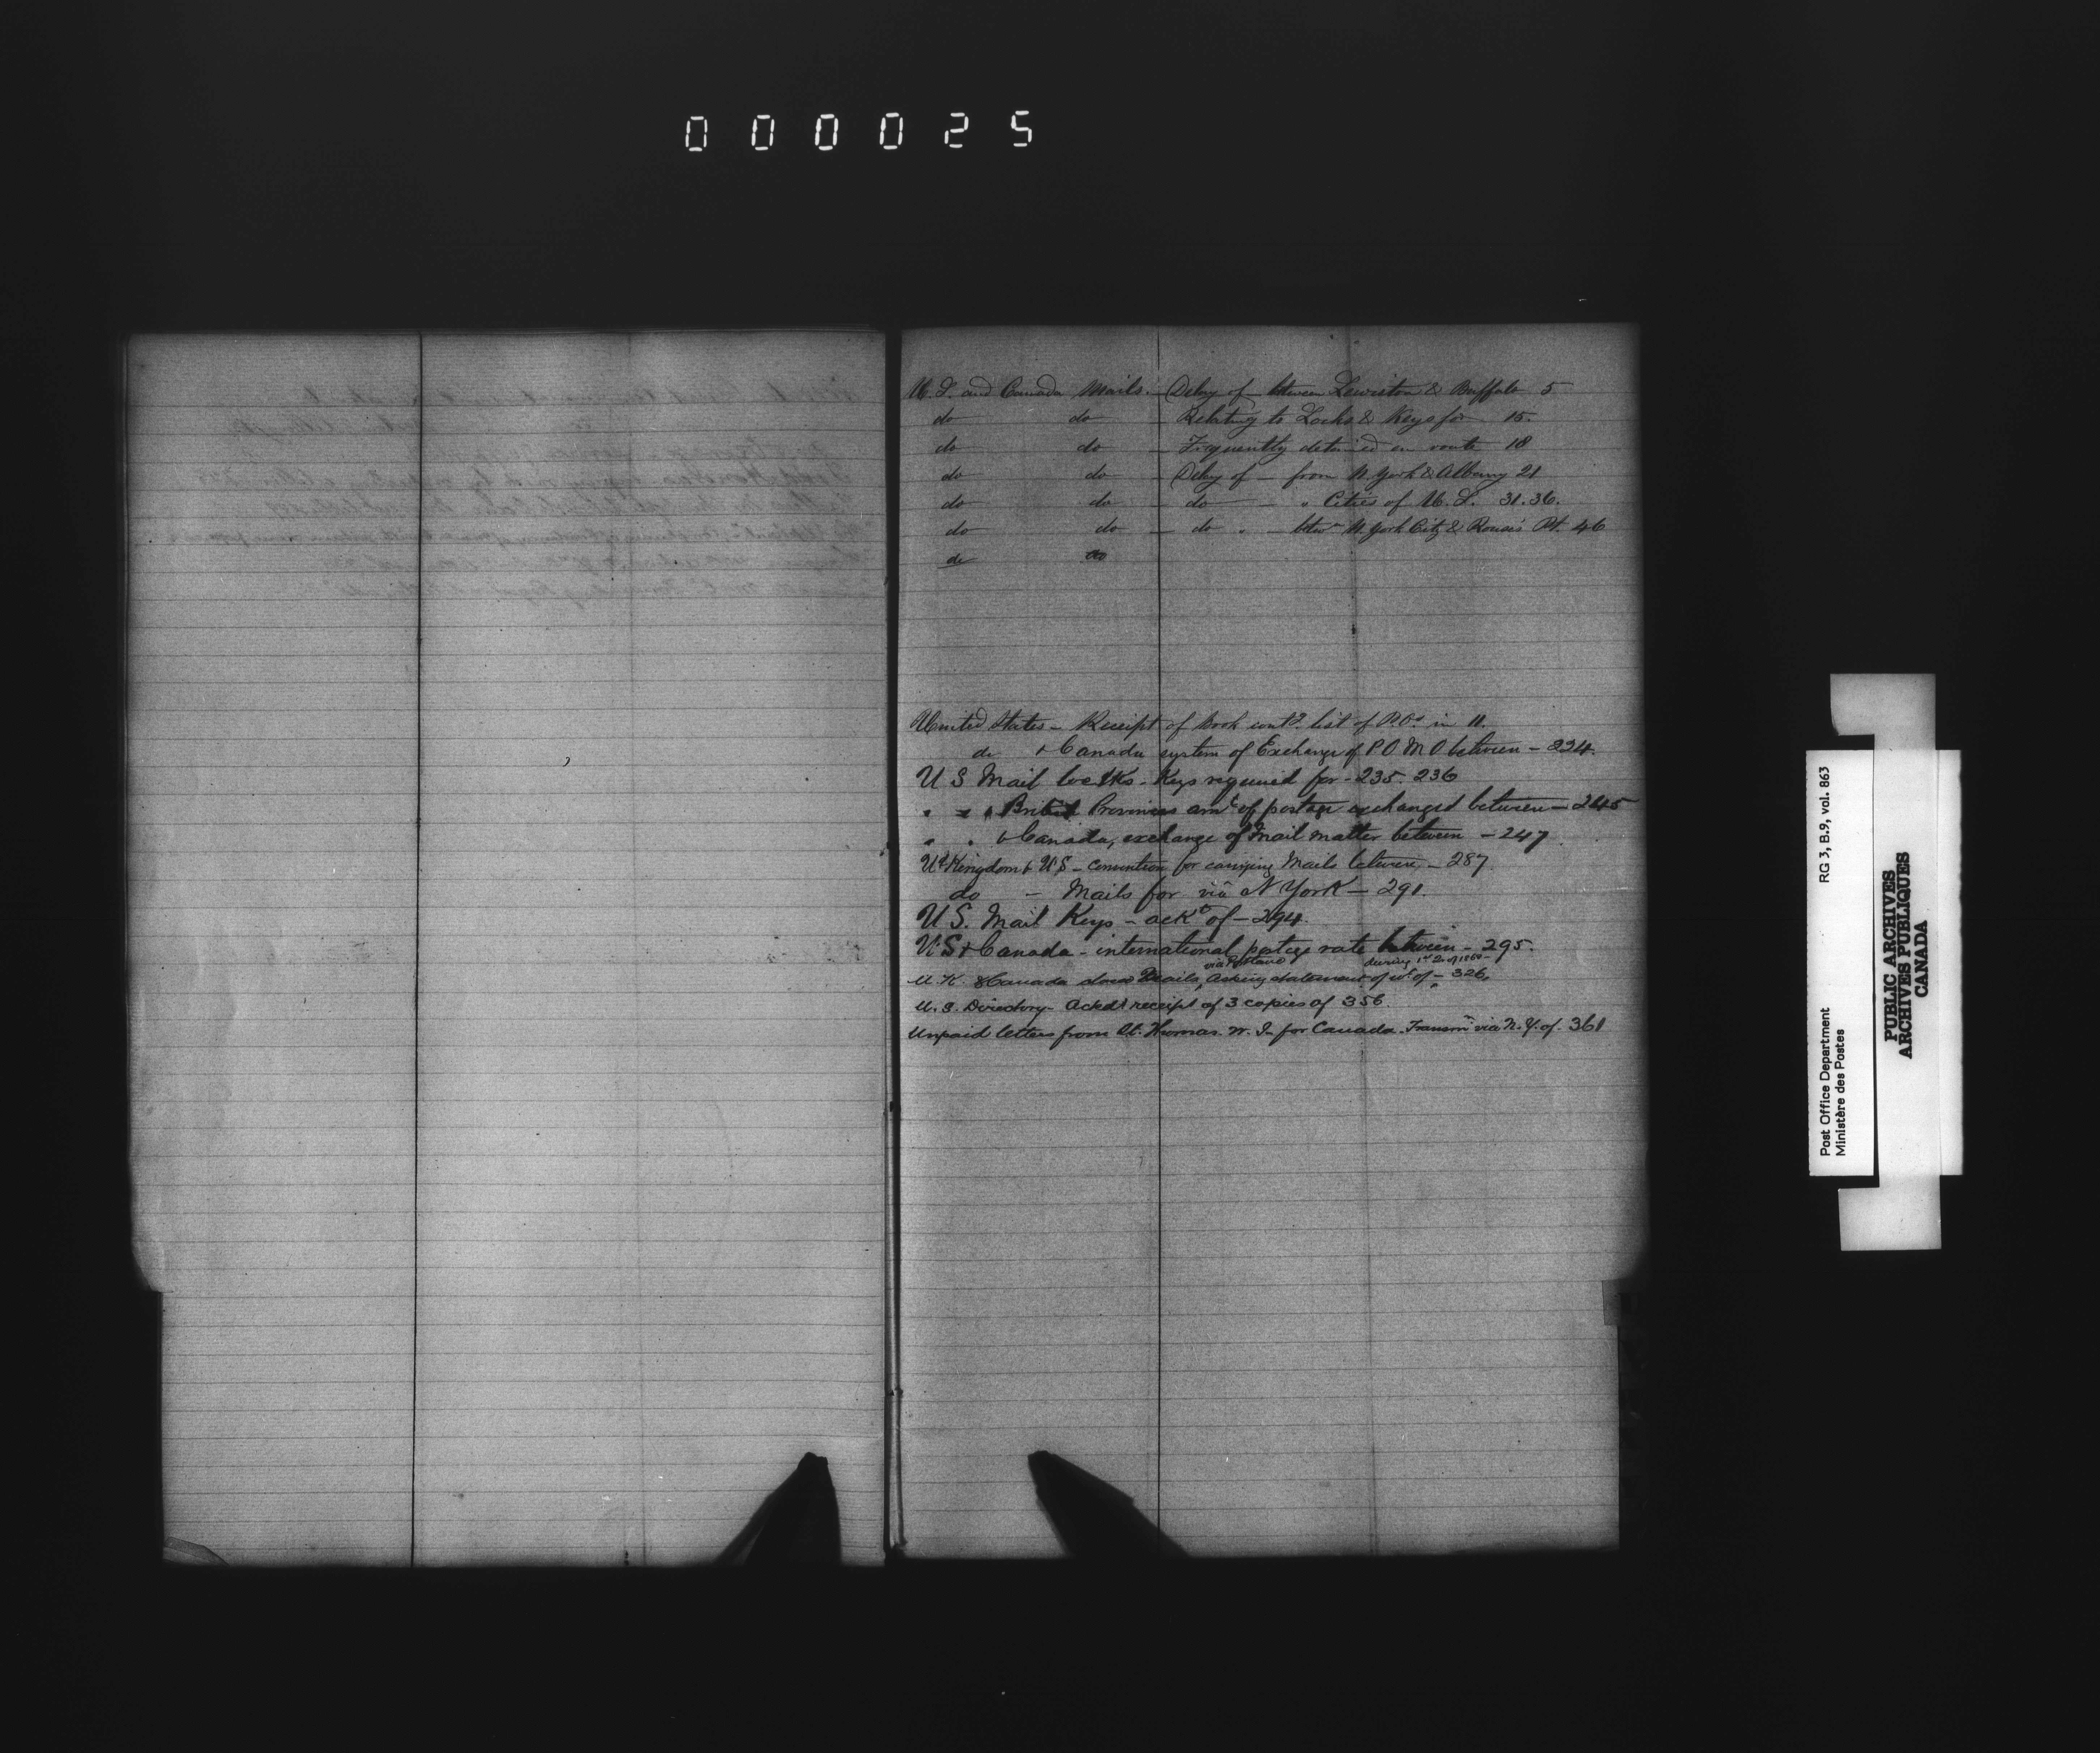 000025
U. S. and Canada Mails. – Delay of – between Lewiston & Buffalo 5
do do – Relating to Locks & Keys for 15.
do do – Frequently detained en route 18
do do – Delay of – from N. York & Albany 21
do do – do – " Cities of U. S. 31. 36.
do do – do " – betwn N. York City & Rouse's Pt. 46
do do
United States – Receipt of book contg. list of P.Os in 11.
do & Canada system of Exchange of P.O.M.O between – 224.
U S Mail locks – Keys required for – 235. 236
" " & British Provinces amt of postage exchanged between – 245
" " & Canada, exchange of mail matter between – 247
Ud Kingdom & U.S – convention for carrying Mails between – 287
do – Mails for viâ N York – 291.
U S. Mail Keys – ackt of – 294.
U.S & Canada – international postage rate between – 295.
U. K. & Canada closed Mails, via Portland Asking statement of wt. of – during 1st Qr of 1868 – 326.
U. S. Directory – Acked receipt of 3 copies of 356.
Unpaid letters from St. Thomas. W. I. for Canada. Transmn via N.Y. of. 361
Post Office Department RG 3, B.9, vol. 863
Ministère des Postes
PUBLIC ARCHIVES
ARCHIVES PUBLIQUES
CANADA